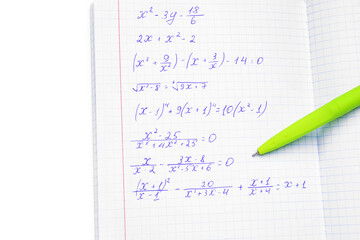 x² - 3y - 18/6
2x + x² - 2
(x² + 9/x²) - (x + 3/x) - 14 = 0
√(x² - 8) = √(3x + 7)
(x - 1)⁴ + 9(x + 1)⁴ = 10(x² - 1)
(x² - 25)/(x³ + 4x² + 25) = 0
x/(x - 2) - (3x - 8)/(x² - 5x + 6) = 0
(x + 1)²/(x - 1) - 20/(x² + 3x - 4) + (x + 1)/(x + 4) = x + 1